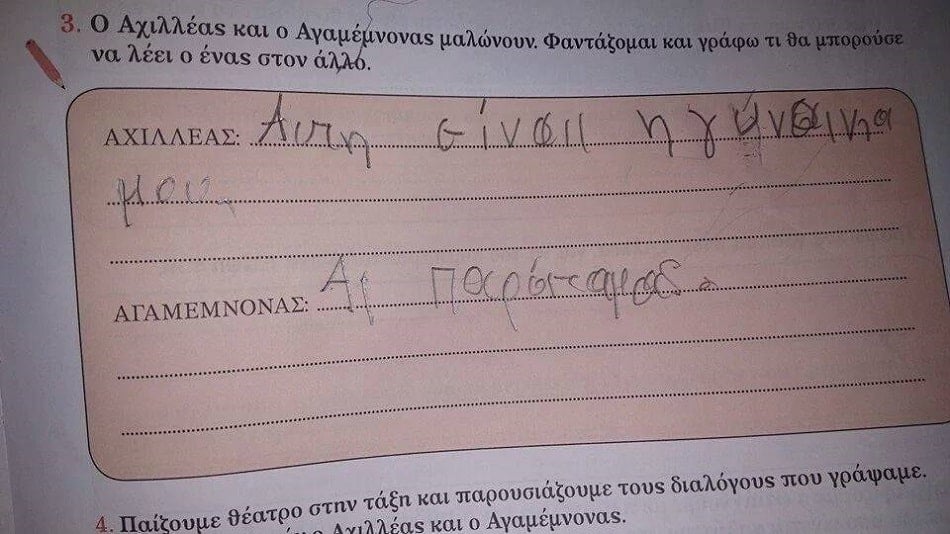 3. Ο Αχιλλέας και ο Αγαμέμνονας μαλώνουν. Φαντάζομαι και γράφω τι θα μπορούσε
να λέει ο ένας στον άλλο.
ΑΧΙΛΛΕΑΣ: Αυτη είναι η γύναικα
μου.
ΑΓΑΜΕΜΝΟΝΑΣ: Αϊ
4. Παίζουμε θέατρο στην τάξη και παρουσιάζουμε τους διαλόγους που γράψαμε.
ο Αχιλλέας και ο Αγαμέμνονας.